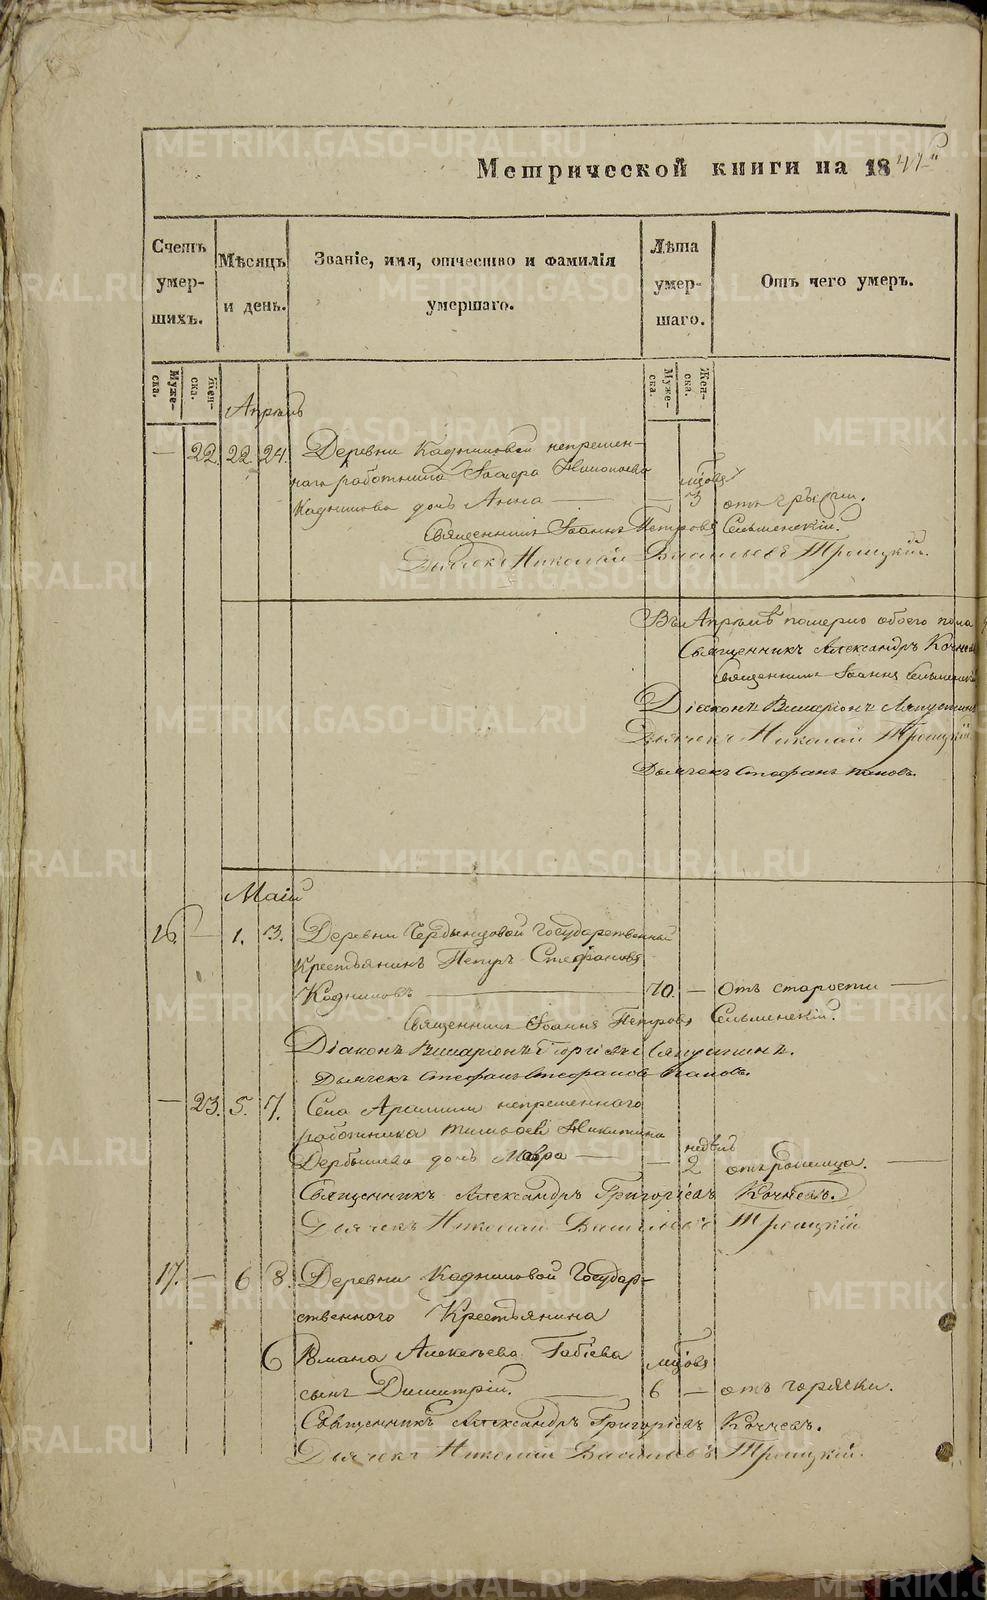 Метрической книги на 18
Счетъ умер- шихъ.
Мѣсяцъ и день.
Званіе, имя, отчество и фамилія умершаго.
Лѣта умер- шаго.
Отъ чего умеръ.
Муже- ска.
Жен- ска.
Муже- ска.
Жен- ска.
Апрѣль
— 22. 22. 24. Деревни Кадниковой непремен-
наго работника
мцовъ
Кадникова дочь Анна — — 3 отъ грыжи.
Священникъ Іоаннъ Петровъ Сельменскій.
Дьячекъ Николай Васильевъ Троицкій.
Въ Апрѣлѣ померло обоего пола
Священникъ Александръ Кочнев
Священникъ Іоаннъ Сельменскі
Діаконъ Виссаріонъ Ляпустинъ
Дьячекъ Николай Троицкій
Дьячекъ Стефанъ Поповъ.
Маій
16. — 1. 3. Деревни Государственный
Крестьянинъ Петръ Стефановъ
Кадниковъ — 70. — Отъ старости —
Священникъ Іоаннъ Петровъ Сельменскій.
Діаконъ Виссаріонъ Георгіевъ Ляпустинъ.
Дьячекъ Стефанъ Стефановъ Поповъ.
— 23. 5. 7. Села Арамили непременного
работника Никитина
недѣль
дочь Мавра — — 2 отъ родимца. —
Священникъ Александръ Григоріевъ Кочневъ.
Дьячекъ Николай Васильевъ Троицкій
17. — 6 8. Деревни Кадниковой Государ-
ственного Крестьянина
6 Романа Алексѣева мцовъ
сынъ Димитрій. — 6 — отъ горячки.
Священникъ Александръ Григоріевъ Кочневъ.
Дьячекъ Николай Васильевъ Троицкій.
METRIKI.GASO-URAL.RU